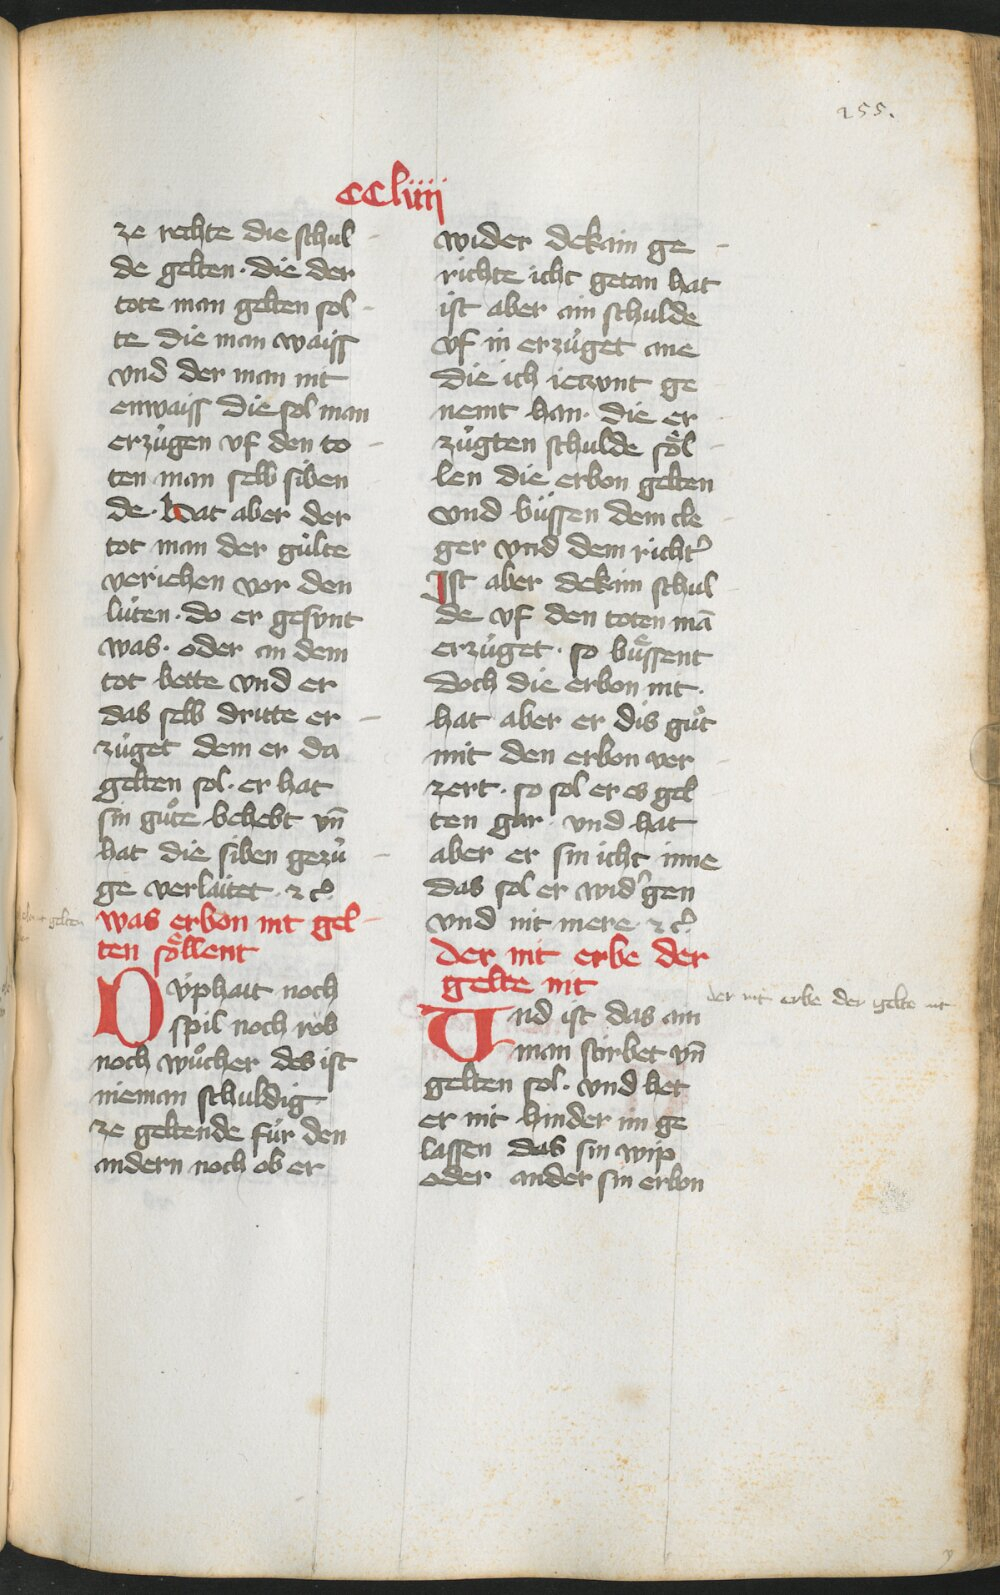 255.
CCliiij
ze rechte die schul-
de gelten · die der
tote man gelten sol-
te die man waiss
vnd der man nit
enwaiss die sol man
erzúgen vf den to-
ten man selb siben
de · hat aber der
tot man der gúlte
veriehen vor den
lúten · do er gesvnt
was · oder an dem
tot bette vnd er
das selb dritte er-
zúget dem er da
gelten sol · er hat
sin gůte behebt vn̄
hat die siben gezú-
ge verlaitet · ⁊ c̉
was erbon nit gel-
ten sǒllent
Dyphait noch
spil noch rob
noch wůcher des ist
nieman schuldig
ze geltende fúr den
andern noch ob er
wider dekain ge-
richte icht getan hat
ist aber ain schulde
vf in erzúget ane
die ich ietzvnt ge-
nemt han · die er-
zúgten schulde sǒl-
len die erbon gelten
vnd bússen dem cle-
ger vnd dem richt̉
Jst aber dekain schul-
de vf den toten mā
erzúget · so bu̍ssent
doch die erbon nit ·
hat aber er dis gůt
mit den erbon ver-
zert · so sol er es gel-
ten gar · vnd hat
aber er sin icht inne
das sol er wid̉gen
vnd nit mere · ⁊ c̉
der nit erbe der
gelte nit
Vnd ist das ain
man stirbet vn̄
gelten sol · vnd het
er nit hinder im ge
lassen das sin wip
oder ander sin erbon
der nit erbe der gelte nit